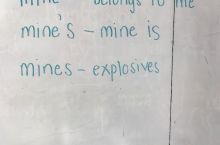 mine belongs to me
mine's - mine is
mines - explosives